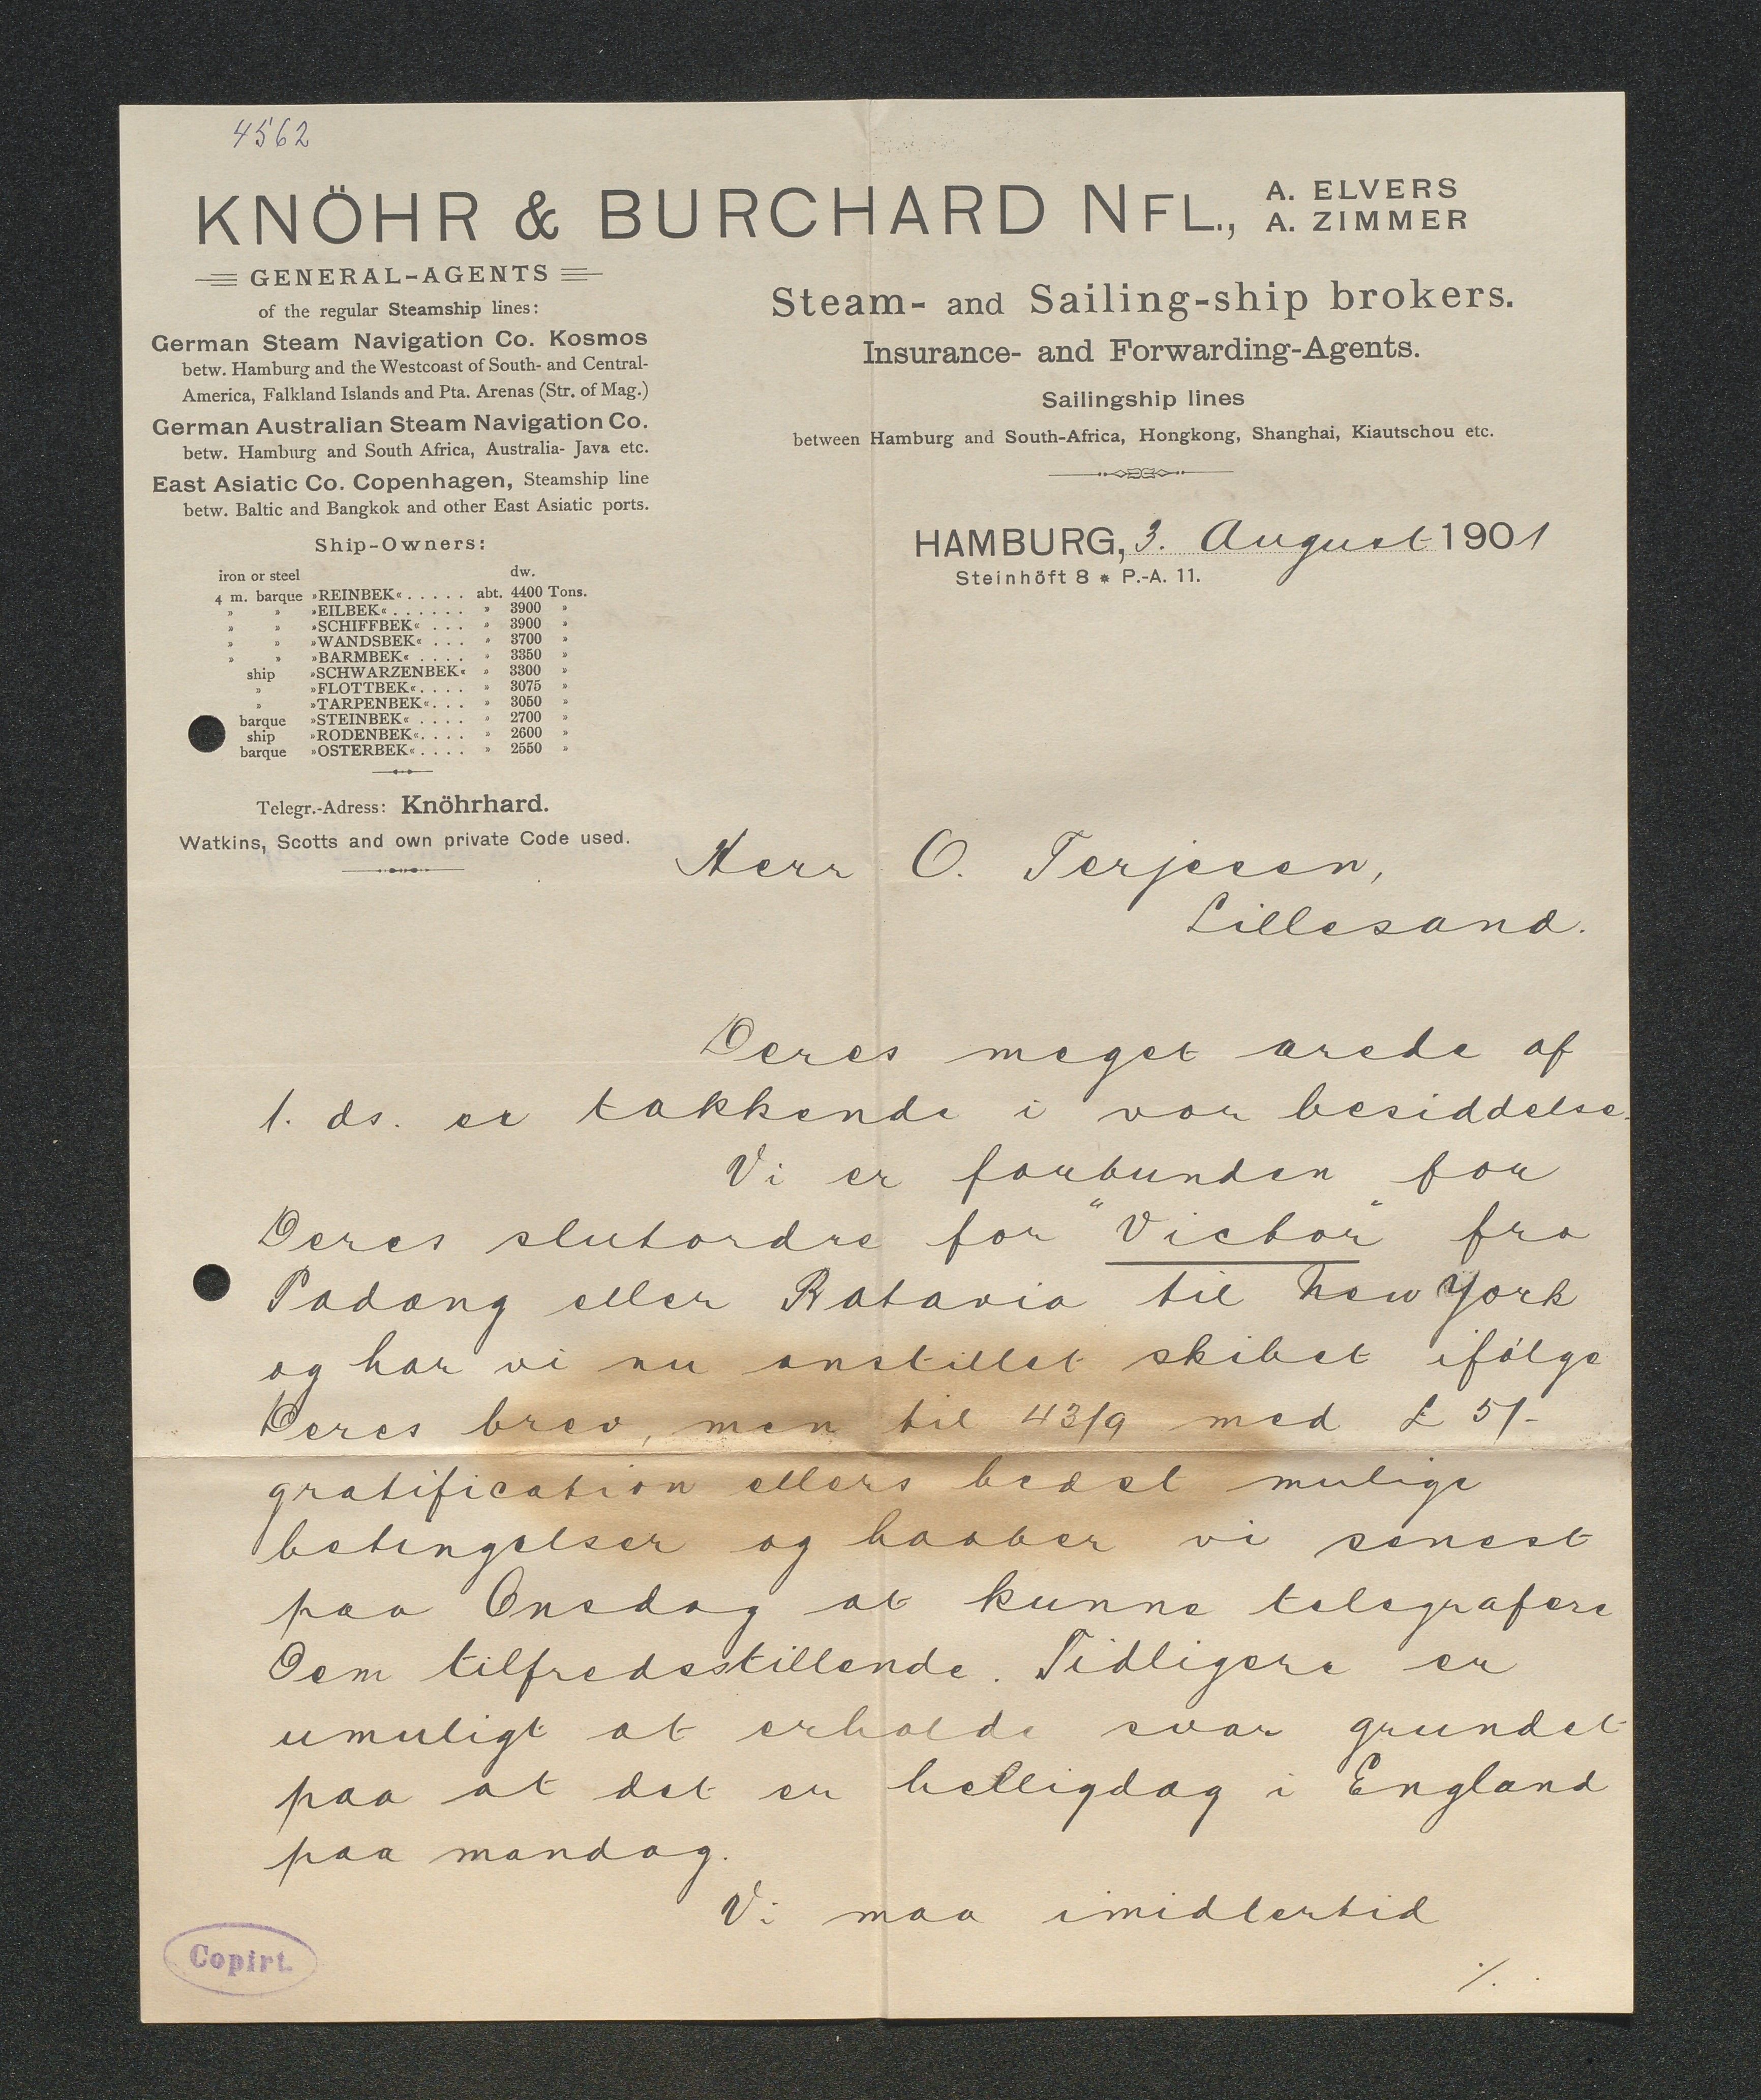 4562
KNÖHR & BURCHARD NFL., A. ELVERS
A. ZIMMER
GENERAL-AGENTS
of the regular Steamship lines:
German Steam Navigation Co. Kosmos
betw. Hamburg and the Westcoast of South- and Central-
America, Falkland Islands and Pta. Arenas (Str. of Mag.)
German Australian Steam Navigation Co.
betw. Hamburg and South Africa, Australia- Java etc.
East Asiatic Co. Copenhagen, Steamship line
betw. Baltic and Bangkok and other East Asiatic ports.
Ship-Owners:
iron or steel dw.
4 m. barque »REINBEK« . . . . . abt. 4400 Tons.
» » »EILBEK« . . . . . . » 3900 »
» » »SCHIFFBEK« . . . » 3900 »
» » »WANDSBEK« . . . » 3700 »
» » »BARMBEK« . . . . » 3350 »
ship »SCHWARZENBEK« » 3300 »
» »FLOTTBEK« . . . . » 3075 »
» »TARPENBEK« . . . » 3050 »
barque »STEINBEK« . . . . » 2700 »
ship »RODENBEK« . . . . » 2600 »
barque »OSTERBEK« . . . . » 2550 »
Telegr.-Adress: Knöhrhard.
Watkins, Scotts and own private Code used.
Steam- and Sailing-ship brokers.
Insurance- and Forwarding-Agents.
Sailingship lines
between Hamburg and South-Africa, Hongkong, Shanghai, Kiautschou etc.
HAMBURG, 3. August 1901
Steinhöft 8 * P.-A. 11.
Herr O. Terjesen,
Lillesand.
Deres meget ærede af
1. ds. er takkende i vor besiddelse.
Vi er forbunden for
Deres slutordre for "Victor" fra
Padang eller Batavia til New York
og har vi nu anstillet skibet ifölge
Deres brev, men til 43/9 med £ 5/-
gratification ellers bedst mulige
betingelser og haaber vi senest
paa Onsdag at kunne telegrafere
Dem tilfredsstillende. Tidligere er
umuligt at erholde svar grundet
paa at det er helligdag i England
paa mandag.
Vi maa imidlertid
./.
Copirt.